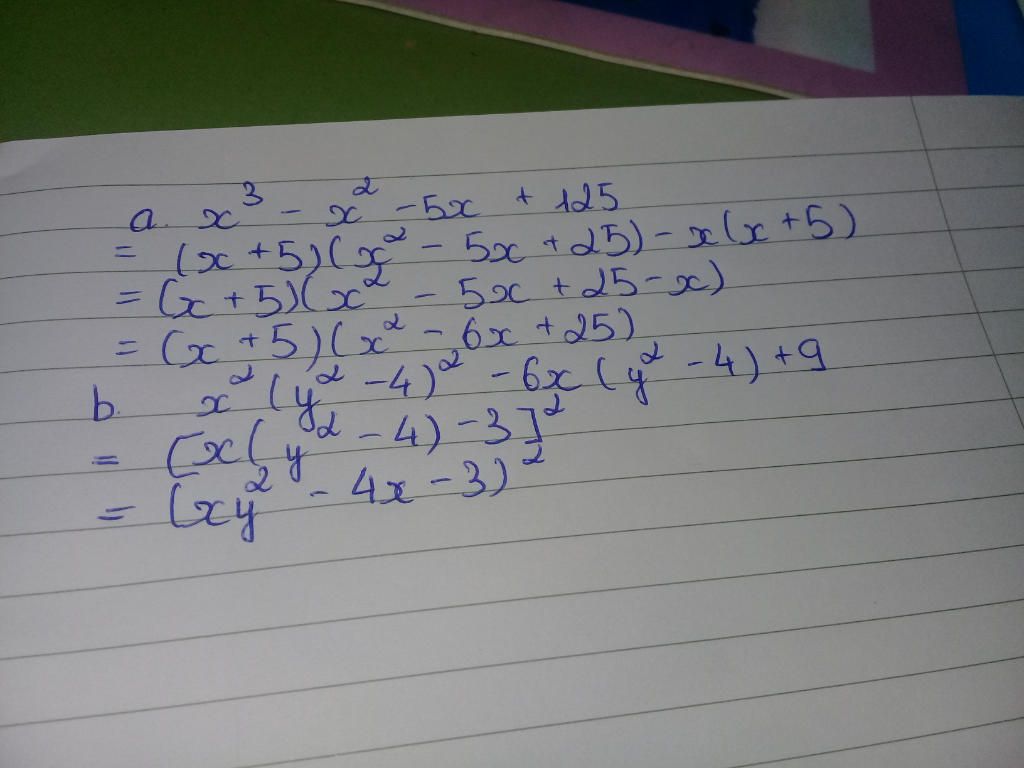 a. x³ - x² - 5x + 125
= (x + 5)(x² - 5x + 25) - x(x + 5)
= (x + 5)(x² - 5x + 25 - x)
= (x + 5)(x² - 6x + 25)
b. x²(y² - 4)² - 6x(y² - 4) + 9
= [x(y² - 4) - 3]²
= (xy² - 4x - 3)²